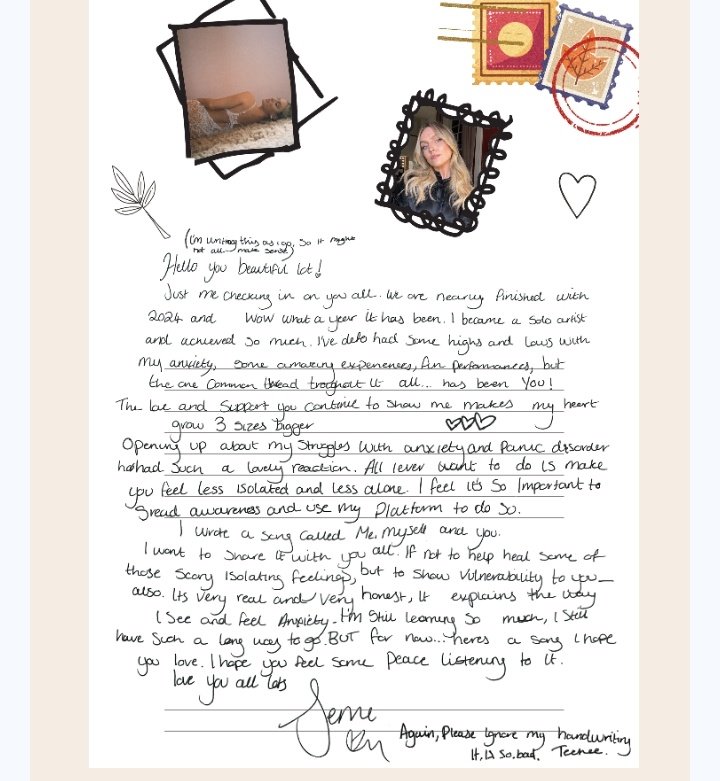 (I'm writing this as i go, So it might
not all make sense)
Hello you beautiful lot!
Just me checking in on you all. We are nearly finished with
2024 and WOW what a year it has been. I became a solo artist
and achieved so much. I've defo had some highs and lows with
my anxiety, some amazing experiences, fun performances, but
the one common thread troghout it all... has been You!
The love and support you continue to show me makes my heart
grow 3 sizes bigger
Opening up about my struggles with anxiety and panic disorder
has had such a lovely reaction. All I ever want to do is make
you feel less isolated and less alone. I feel it's so important to
sread awareness and use my platform to do so.
I wrote a song called Me, myself and you.
I want to share it with you all. If not to help heal some of
those scary isolating feelings, but to show vulnerability to you
also. Its very real and very honest, it explains the way
I see and feel Anxiety. I'm still learning so much, I still
have such a long way to go. BUT for now... heres a song I hope
you love. I hope you feel some peace listening to it.
love you all lots
Again, Please ignore my handwriting
It, is so, bad. Teehee.